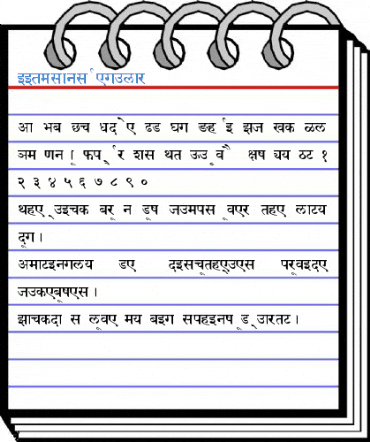 इइतमसानर्स एगउलार
आ भब छच धद ै ए ढड घग ङर्ह इ झज खक ळल
ञम णन ू फर्प र शस थत उऊ ू व ै क्षष द्यय ठट १
२ ३ ४ ५ ६ ७ ८ ९ ०
थहए ्उइचक बर ू न ड ूष जउमपस ूवएर तहए लाटय
द ूग ।
अमाटइनगलय डए दइसच ूतह ्उएस पर ूवइदए
जउकएब ूषएस ।
झाचकदा स ल ूवए मय बइग सपहइनष ूड ्उारतट ।